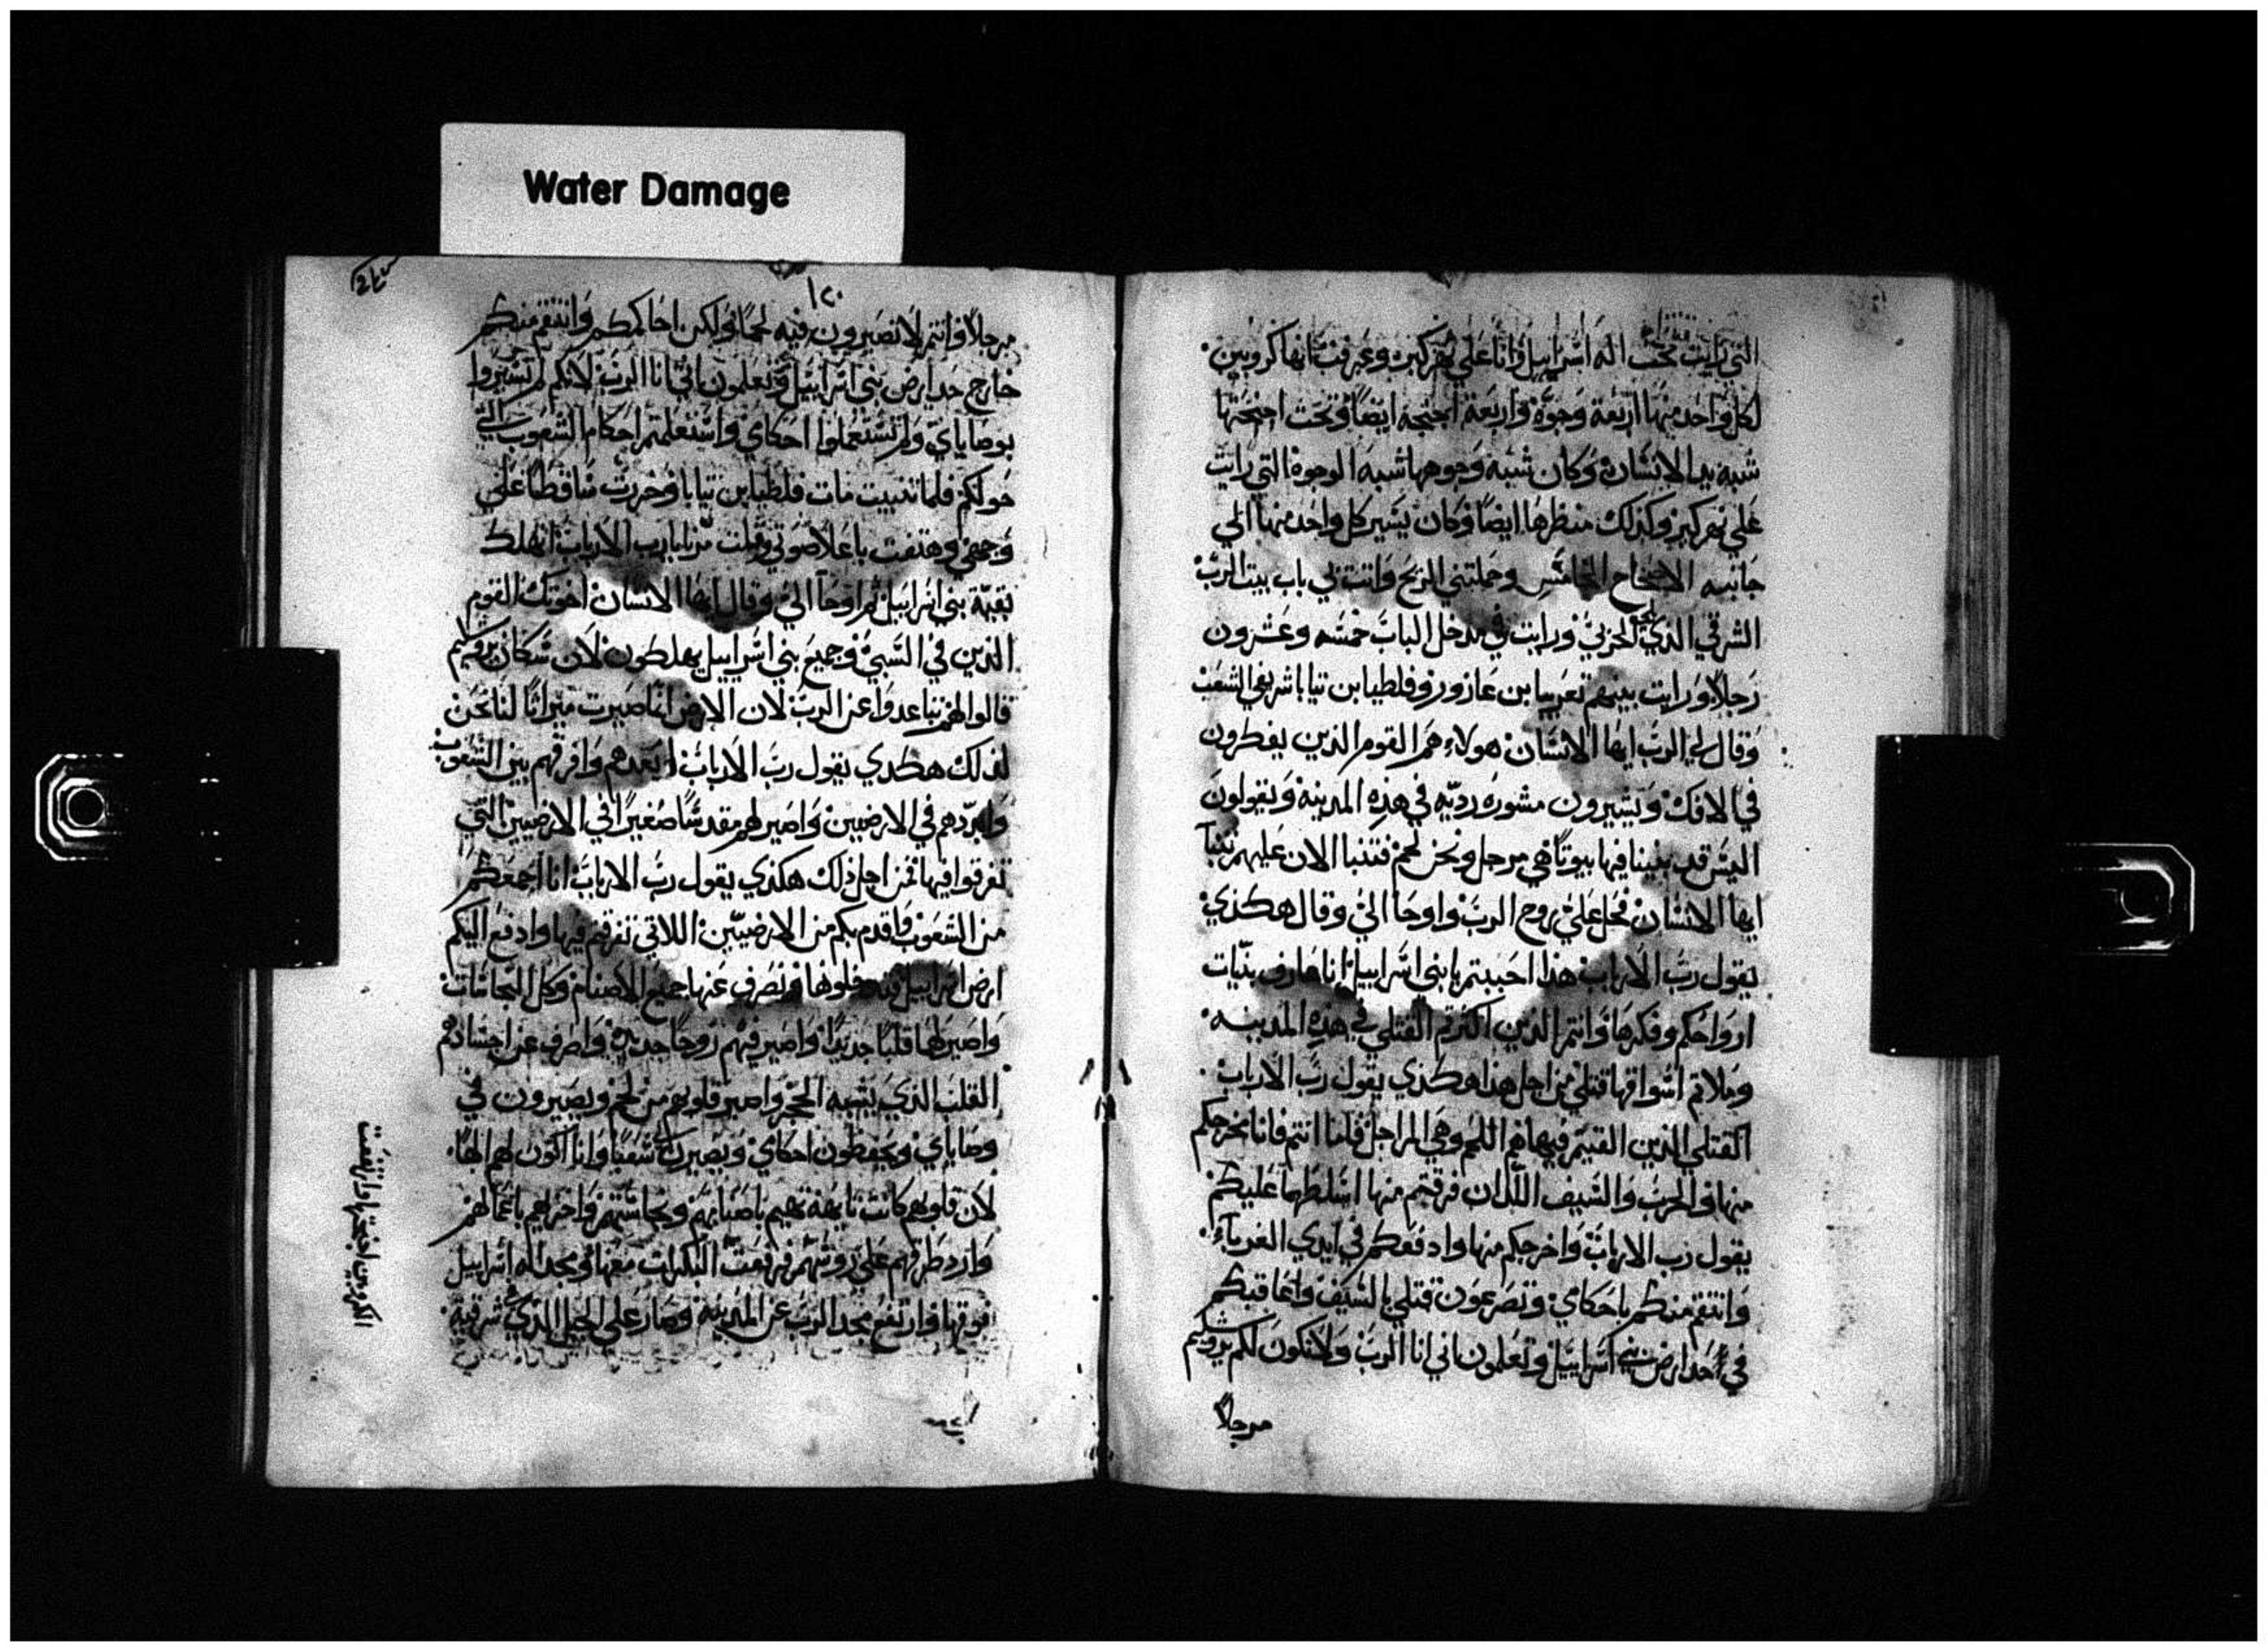 Water Damage
التي رايت تحت اله اسراييل وانا على نهر كبر وعرفت انها كروبين
لكل واحد منها اربعة وجوه واربعة اجنحة ايضا وتحت اجنحتها
شبه يد الانسان وكان شبه وجوهها شبه الوجوه التي رايت
على نهر كبر وكذلك منظرها ايضا وكان يسير كل واحد منها الي
جانبه الاصحاح وحملتني الريح واتت بي باب بيت الرب
الشرقي الذي ورايت في مدخل الباب خمسه وعشرون
رجلا ورايت بينهم بن عازور وفلطيا بن نيابا شريفي الشعب
وقال لي الرب ايها الانسان هولاء هم القوم الذين يفطرون
في الافك ويشيرون مشوره رديه في هذه المدينه ويقولون
اليس قد بنينا فيها بيوتا هي مرجل ونحن لحم فتنبا الان عليهم تنبا
ايها الانسان فحل علي روح الرب واوحا الي وقال هكذي
يقول رب الارباب هذا احببتم يا بني اسراييل انا عارف بنيات
ارواحكم وفكرها وانتم الذين اكثرتم القتلي في هذه المدينه
وملاتم اسواقها قتلي من اجل هذا هكذي يقول رب الارباب
القتلي الذين القيتم فيها هم اللحم وهي المراجل فاما انتم فانا مخرجكم
منها والحرب والسيف اللذان فرقتم منها اسلطها عليكم
يقول رب الارباب واخرجكم منها وادفعكم في ايدي الغرباء
وانتقم منكم باحكاي وتصرعون قتلي بالسيف واعاقبكم
في حد ارض بني اسراييل وتعلمون اني انا الرب ولا تكون لكم يروشليم
مرجلا
١٢٠
مرجلا وانتم لا تصيرون فيه لحما ولكن احاكمكم وانتقم منكم
خارج حد ارض بني اسراييل وتعلمون اني انا الرب لانكم لم تسيروا
بوصاياي ولم تستعملوا احكاي واستعملتم احكام الشعوب التي
حولكم فلما تنبيت مات فلطيا بن نيابا وخررت ساقطا علي
وجهي وهتفت باعلا صوتي وقلت يا رب الارباب اتهلك
بقية بني اسراييل ثم اوحا الي وقال ايها الانسان اخوتك القوم
الذين في السبي وجميع بني اسراييل يهلطون لان سكان يروشليم
قالوا لهم تباعدوا عن الرب لان الارض انما صيرت ميراثا لنا نحن
لذلك هكذي يقول رب الارباب ابعدهم وافرقهم بين الشعوب
وابددهم في الارضين واصير لهم مقدسا صغيرا في الارضين التي
تفرقوا فيها من اجل ذلك هكذي يقول رب الارباب انا اجمعكم
من الشعوب واقدم بكم من الارضين اللاتي تفرقتم فيها وادفع اليكم
ارض اسراييل وتصرف عنها جميع الاصنام وكل النجاسات
واصير لها قلبا جديدا واصير فيهم روحا جديده واصرف عن اجسادهم
القلب الذي يشبه الحجر واصير قلوبهم من لحم ويصيرون في
وصاياي ويحفظون احكاي ويصيرون شعبا وانا اكون لهم الها
لان قلوبهم كانت تابعة باصنامهم ونجاستهم واخزيهم باعمالهم
وارد طرقهم علي روسهم فرفعت البكرات معها ومجد اله اسراييل
فوقها وارتفع مجد الرب عن المدينه وصار علي الجبل الذي شرقيه